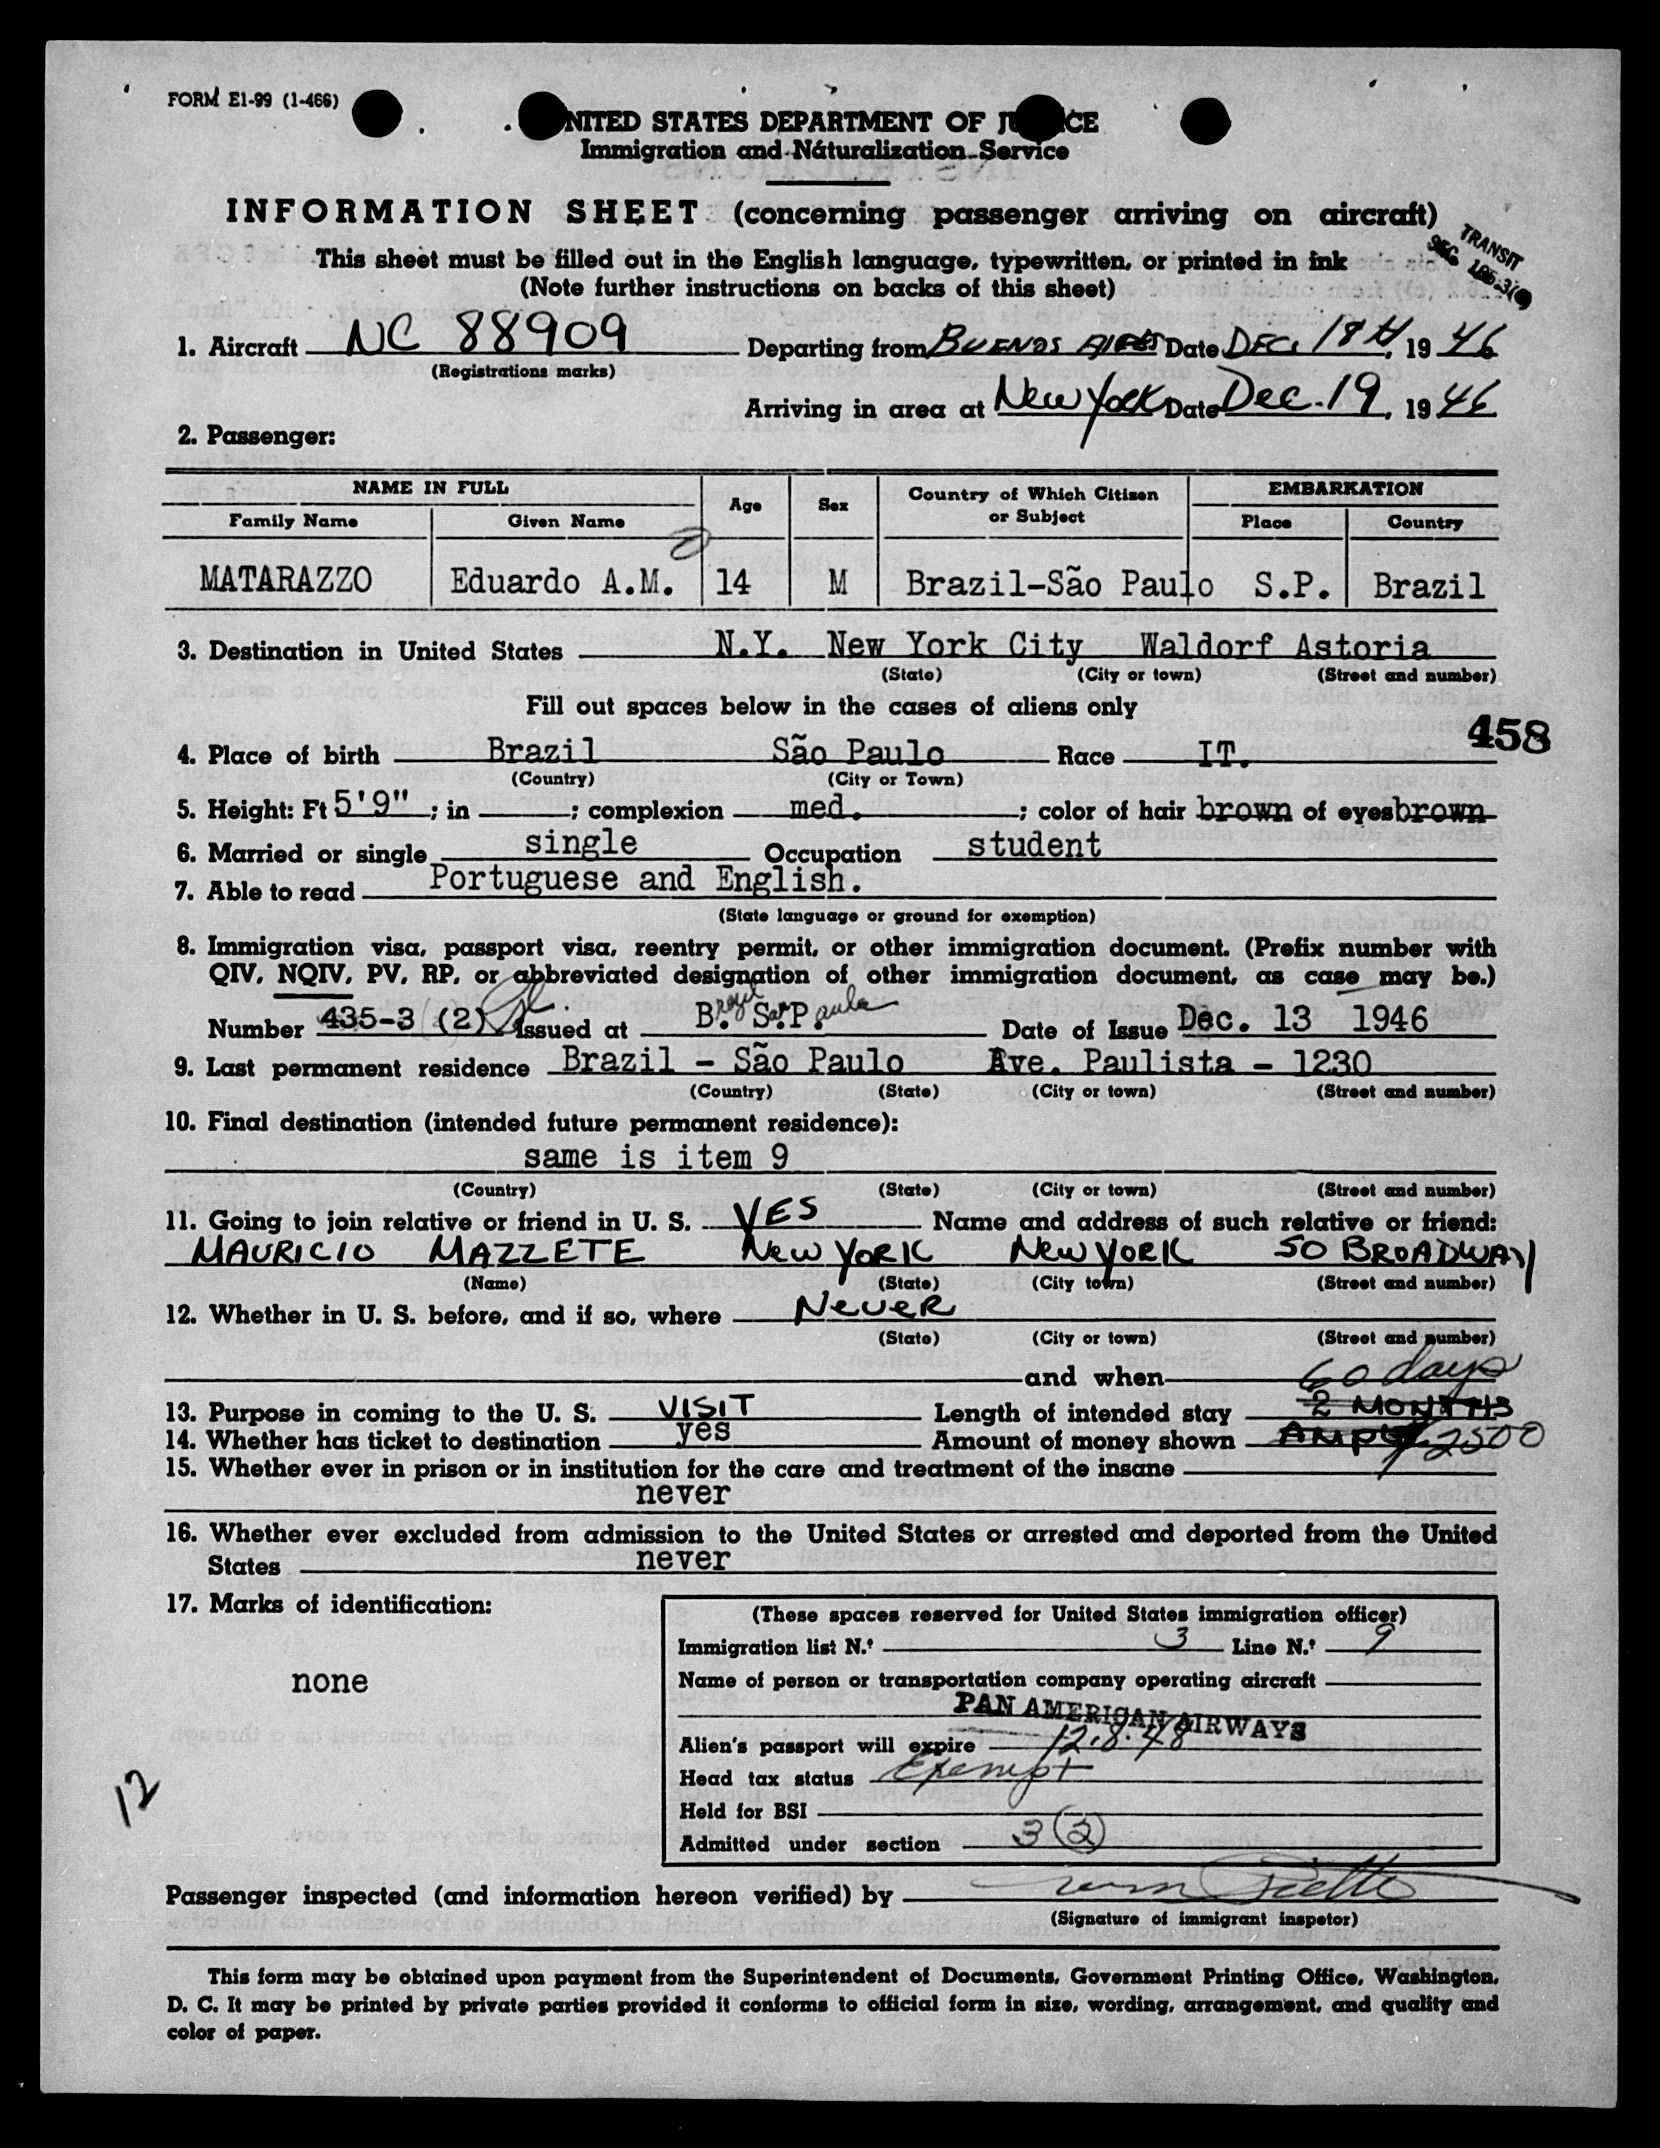 FORM E1-99 (1-466)
UNITED STATES DEPARTMENT OF JUSTICE
Immigration and Naturalization Service
INFORMATION SHEET (concerning passenger arriving on aircraft)
TRANSIT
SEC.
This sheet must be filled out in the English language, typewritten, or printed in ink
(Note further instructions on backs of this sheet)
1. Aircraft NC 88909 Departing from BUENOS AIRES Date DEC. 18th, 19 46
(Registrations marks)
Arriving in area at New York Date Dec. 19, 19 46
2. Passenger:
NAME IN FULL Age Sex Country of Which Citizen or Subject EMBARKATION
Family Name Given Name Place Country
MATARAZZO Eduardo A.M. 14 M Brazil-São Paulo S.P. Brazil
3. Destination in United States N.Y. New York City Waldorf Astoria
(State) (City or town) (Street and number)
Fill out spaces below in the cases of aliens only
458
4. Place of birth Brazil São Paulo Race IT.
(Country) (City or Town)
5. Height: Ft 5'9" ; in ; complexion med. ; color of hair brown of eyes brown
6. Married or single single Occupation student
7. Able to read Portuguese and English.
(State language or ground for exemption)
8. Immigration visa, passport visa, reentry permit, or other immigration document. (Prefix number with
QIV, NQIV, PV, RP, or abbreviated designation of other immigration document, as case may be.)
Number 435-3 (2) Issued at Brazil Sao Paulo Date of Issue Dec. 13 1946
9. Last permanent residence Brazil - São Paulo Ave. Paulista - 1230
(Country) (State) (City or town) (Street and number)
10. Final destination (intended future permanent residence):
same is item 9
(Country) (State) (City or town) (Street and number)
11. Going to join relative or friend in U. S. YES Name and address of such relative or friend:
MAURICIO MAZZETE New YORK New YORK 50 BROADWAY
(Name) (State) (City town) (Street and number)
12. Whether in U. S. before, and if so, where NeveR
(State) (City or town) (Street and number)
and when 60 days
13. Purpose in coming to the U. S. VISIT Length of intended stay 2 MONTHS
14. Whether has ticket to destination yes Amount of money shown AMPLE 2500
15. Whether ever in prison or in institution for the care and treatment of the insane
never
16. Whether ever excluded from admission to the United States or arrested and deported from the United
States never
17. Marks of identification:
none
12
(These spaces reserved for United States immigration officer)
Immigration list N.º 3 Line N.º 9
Name of person or transportation company operating aircraft
PAN AMERICAN AIRWAYS
Alien's passport will expire 12.8.48
Head tax status Exempt
Held for BSI
Admitted under section 3(2)
Passenger inspected (and information hereon verified) by
(Signature of immigrant inspetor)
This form may be obtained upon payment from the Superintendent of Documents, Government Printing Office, Washington,
D. C. It may be printed by private parties provided it conforms to official form in size, wording, arrangement, and quality and
color of paper.